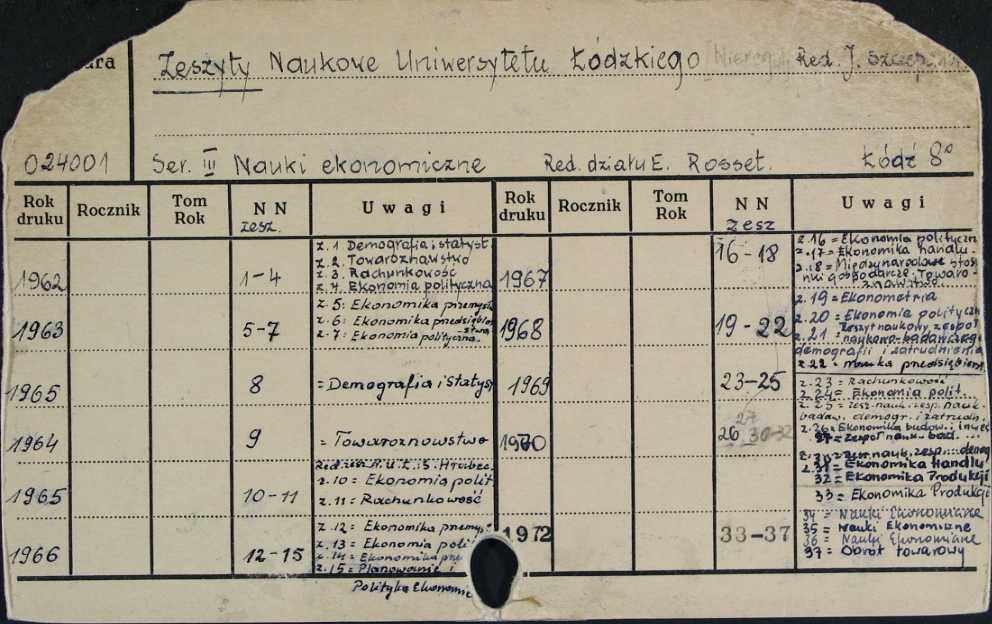 Zeszyty Naukowe Uniwersytetu Łódzkiego Red. J. Szczep
024001 Ser. III Nauki ekonomiczne Red. działu E. Rosset. Łódź 8°
Rok druku Rocznik Tom Rok NN zesz. Uwagi Rok druku Rocznik Tom Rok NN zesz Uwagi
1962 1-4 z. 1 Demografia i statyst.
z. 2. Towaroznawstwo
z. 3. Rachunkowość
z. 4. Ekonomia polityczna
1963 5-7 z. 5: Ekonomika przemysł
z. 6: Ekonomika przedsiębior
stwa
z. 7: Ekonomia polityczna.
1965 8 = Demografia i statyst
1964 9 = Towaroznowstwo
1965 10-11 z. 10 = Ekonomia polit
z. 11 = Rachunkowość
1966 12-15 z. 12 = Ekonomika przemys
z. 13 = Ekonomia poli
z. 14 = Ekonomika prz
z. 15 = Planowanie i
Polityka Ekonomic
1967 16-18 z. 16 = Ekonomia polityczn
z. 17 = Ekonomika handlu.
z. 18 = Międzynarodowe stos
nki gospodarcze. Towaro-
znawstwo.
1968 19-22 z. 19 = Ekonometria
z. 20 = Ekonomia polityczn
z. 21 = Zeszyt naukowy zespoł
naukowo-badawczego
demografii i zatrudnienia
z. 22 = mika przedsiębiorst
1969 23-25 z. 23 = Rachunkowość
z. 24 = Ekonomia polit.
z. 25 = zesz. nauk. zesp. nauk.
badaw. demogr. i zatrudn.
1970 26 27 30-32 z. 26 = Ekonomika budow. i inwes
27 = Zespół nauk. bad. ...
z. 30 = zesz. nauk. zesp. ... demog
z. 31 = Ekonomika Handlu
32 = Ekonomika Produkcji
33 = Ekonomika Produkcji
1972 33-37 34 = Nauki Ekonomiczne
35 = Nauki Ekonomiczne
36 = Nauki Ekonomiczne
37 = Obrót towarowy